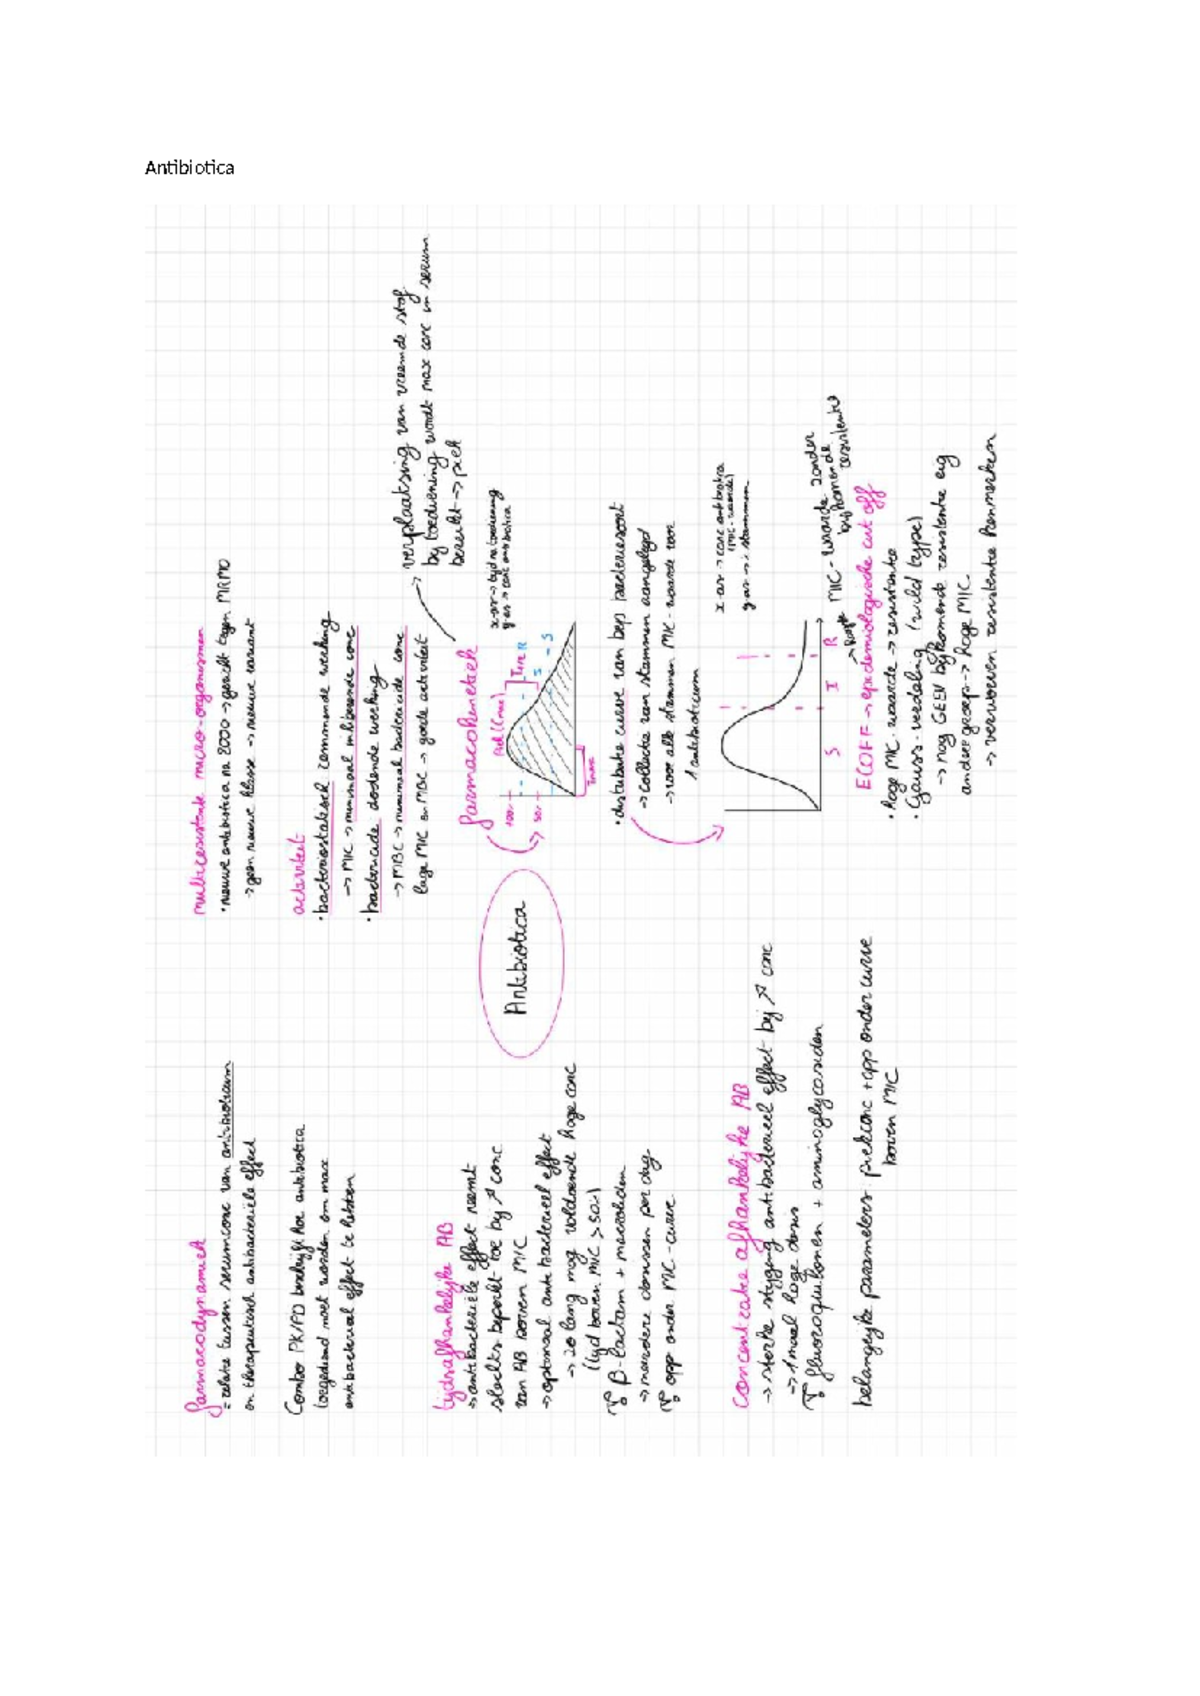 Antibiotica
farmacodynamiek
= relatie tussen serumconc van antibioticum
en therapeutisch antibacteriële effect
Combo PK/PD hoe antibiotica
toegediend moet worden om max
antibacterial effect te hebben
tijdsafhankelijke AB
→ antibacteriële effect neemt
slechts beperkt toe bij ↗ conc
van AB boven MIC
→ optimaal antibacterieel effect
→ zo lang mog voldoende hoge conc
(tijd boven MIC > 50%)
β-lactam + macroliden
→ meerdere dosissen per dag
opp onder MIC-curve
concentratie afhankelijke AB
→ sterke stijging antibacterieel effect bij ↗ conc
→ 1 maal hoge dosis
fluoroquilonen + aminoglycosiden
belangrijke parameters: piekconc + opp onder curve
boven MIC
Antibiotica
multiresistente micro-organismen
• nieuwe antibiotica na 2000 → gericht tegen MRMO
→ geen nieuwe klasse → nieuwe variant
activiteit
• bacteriostatisch: remmende werking
→ MIC → minimaal inhiberende conc
• bactericide: dodende werking
→ MBC → minimaal bactericide conc
lage MIC en MBC → goede activiteit
farmacokinetiek
→ verplaatsing van vreemde stof
bij toediening wordt max conc in serum
bereikt → piek
x-as → tijd na toediening
y-as → conc antibiotica
Piek (Cmax)
R
I
S
Tmax
• distributie curve van bep bacteriesoort
→ collectie van stammen aangelegd
→ voor alle stammen MIC-waarde voor
1 antibioticum
x-as → conc antibiotica
(MIC-waarde)
y-as → stammen
S I R
→ hoogste MIC-waarde zonder
bijkomende
resistentie
ECOFF → epidemiologische cut off
• hoge MIC-waarde → resistentie
• Gauss-verdeling (wild type)
→ nog GEEN bijkomende resistentie eig
andere groep → hoge MIC
→ verworven resistentie kenmerken